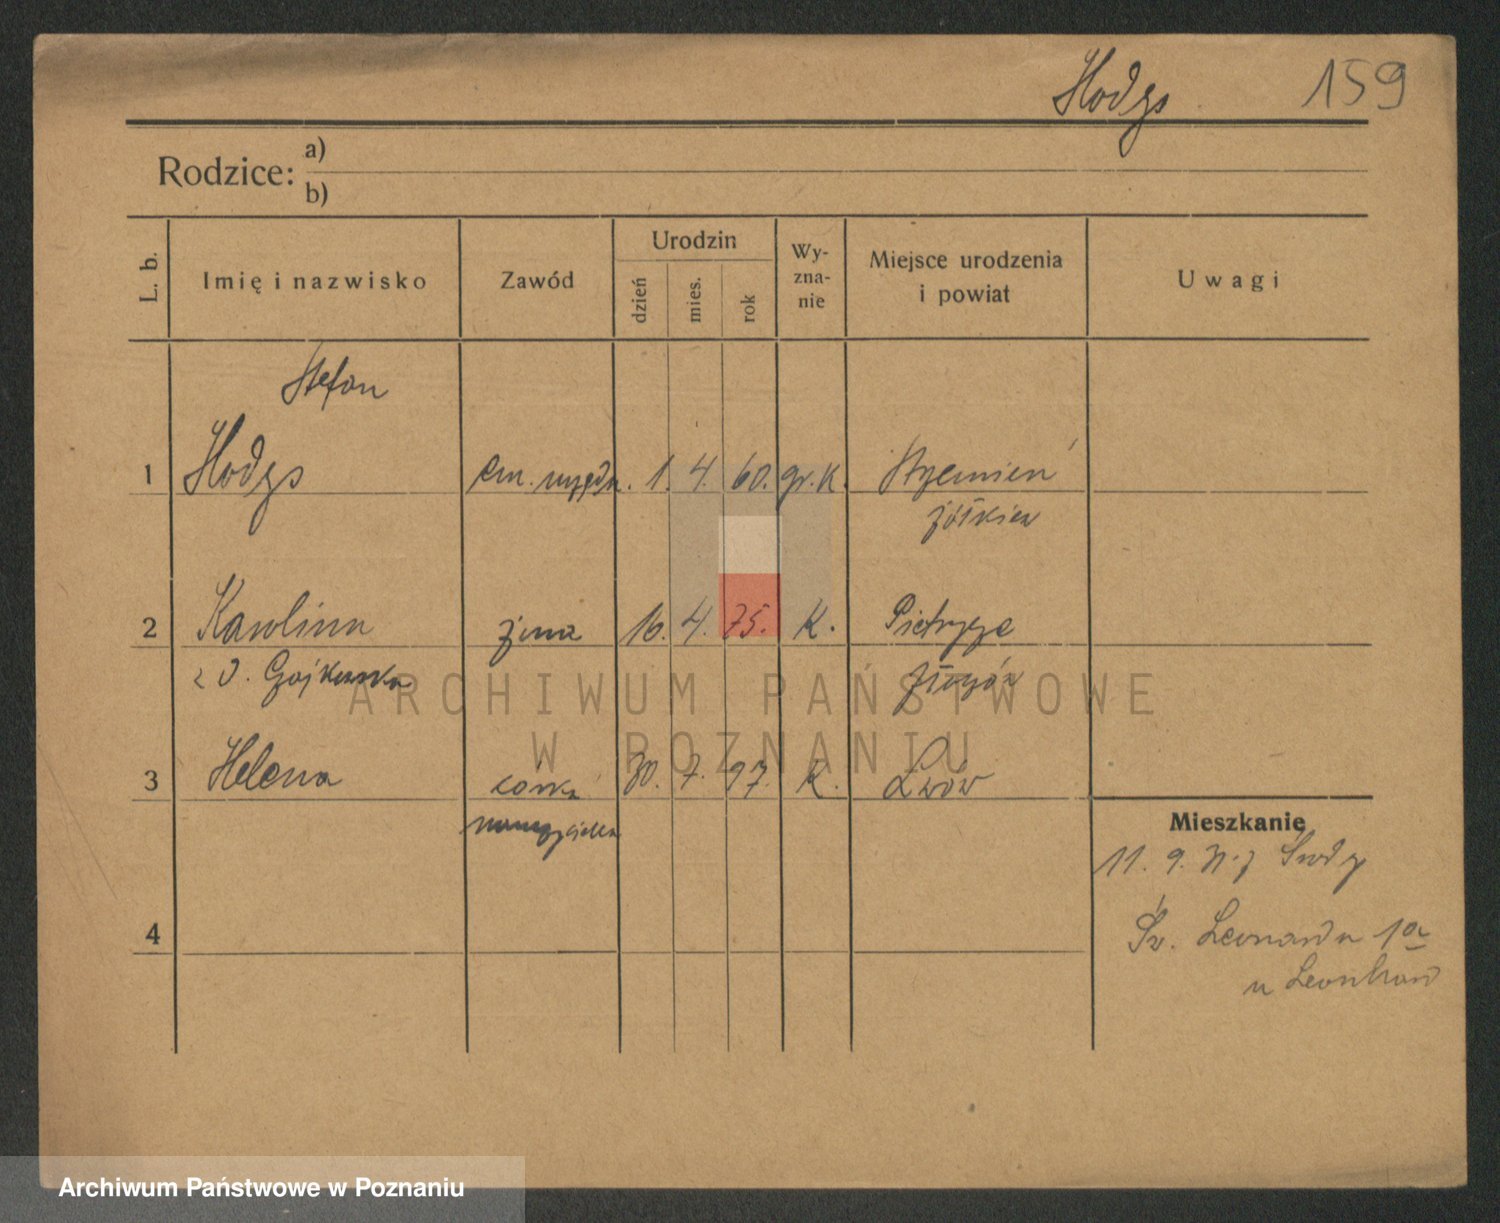 Hodys 159
Rodzice: a)
b)
L. b. Imię i nazwisko Zawód Urodzin dzień mies. rok Wy-zna-nie Miejsce urodzenia i powiat Uwagi
Stefan
1 Hodys em. urzędn. 1. 4. 60. gr. K.
żółkiew
2 Karolina żona 16. 4. 75. K. Pietrycze
z d. Gajkowska złoczów
ARCHIWUM PAŃSTWOWE
W POZNANIU
3 Helena córka 30. 7. 97. K. Lwów
nauczycielka
Mieszkanie
11. 9. Środy
4 Św. Leonarda 1a
u
Archiwum Państwowe w Poznaniu